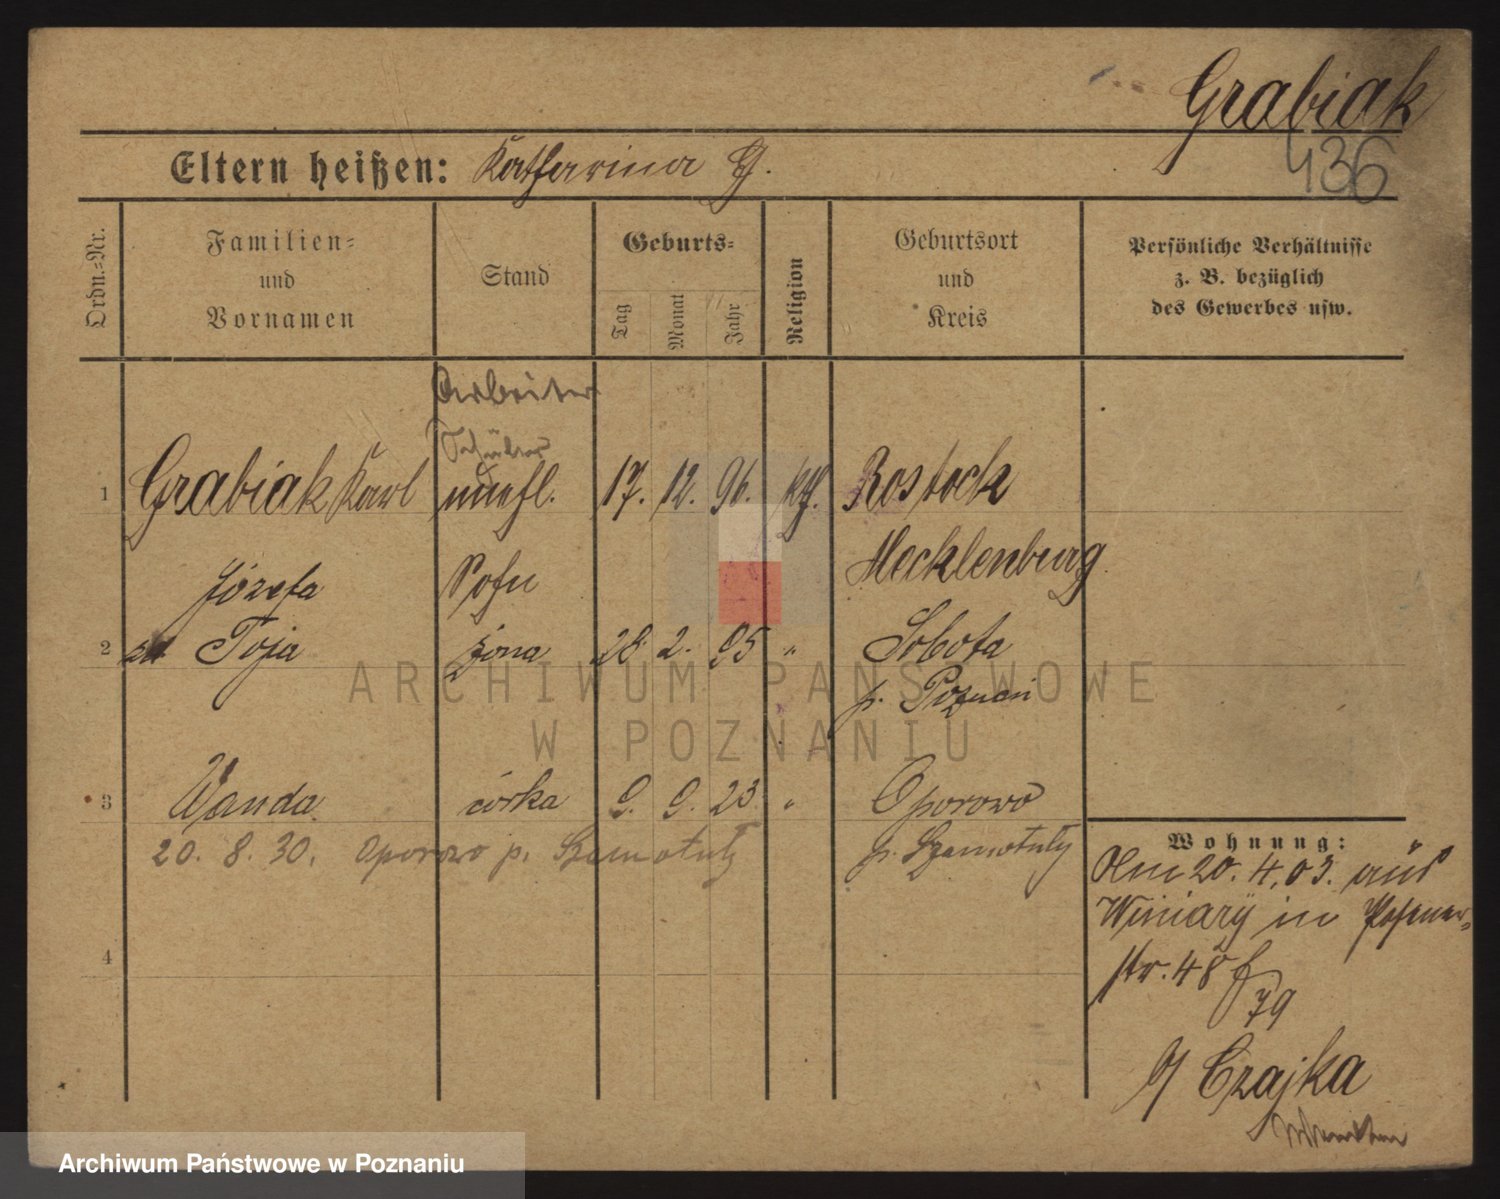 Grabiak
436
Eltern heißen: Katharina G.
Ordn.-Nr.
Familien-
und
Vornamen
Stand
Geburts-
Tag
Monat
Jahr
Religion
Geburtsort
und
Kreis
Persönliche Verhältnisse
z. B. bezüglich
des Gewerbes usw.
Arbeiter
1 Grabiak Karl unehl. 17. 12. 96. kth. Rostock
Józefa Sohn Mecklenburg
2 zd Toja żona 28. 2. 95 " Sobota
p. Poznań
ARCHIWUM PAŃSTWOWE
W POZNANIU
3 Wanda córka 9. 9. 23. " Oporowo
20. 8. 30. Oporowo p. Szamotuły p. Szamotuły
4
Wohnung:
Am 20. 4. 03. aus
Winiary in Posener-
str. 48
79
b/ Czajka
Archiwum Państwowe w Poznaniu